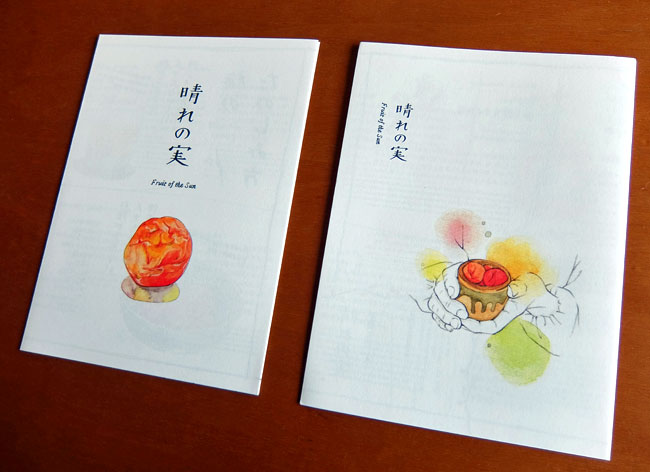 晴れの実
Fruit of the Sun
晴れの実
Fruit of the Sun